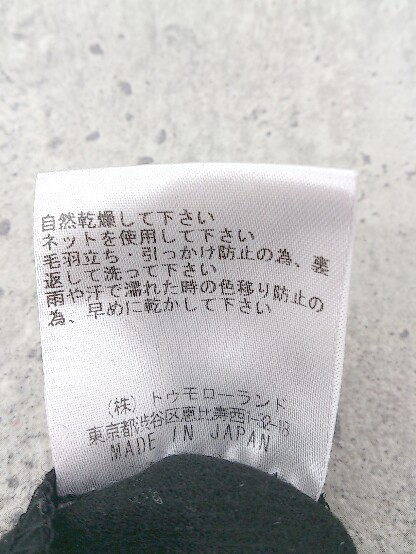 自然乾燥して下さい
ネットを使用して下さい
毛羽立ち・引っかけ防止の為、裏
返して洗って下さい
雨や汗で濡れた時の色移り防止の
為、早めに乾かして下さい
(株) トゥモローランド
東京都渋谷区恵比寿西1-32-18
MADE IN JAPAN